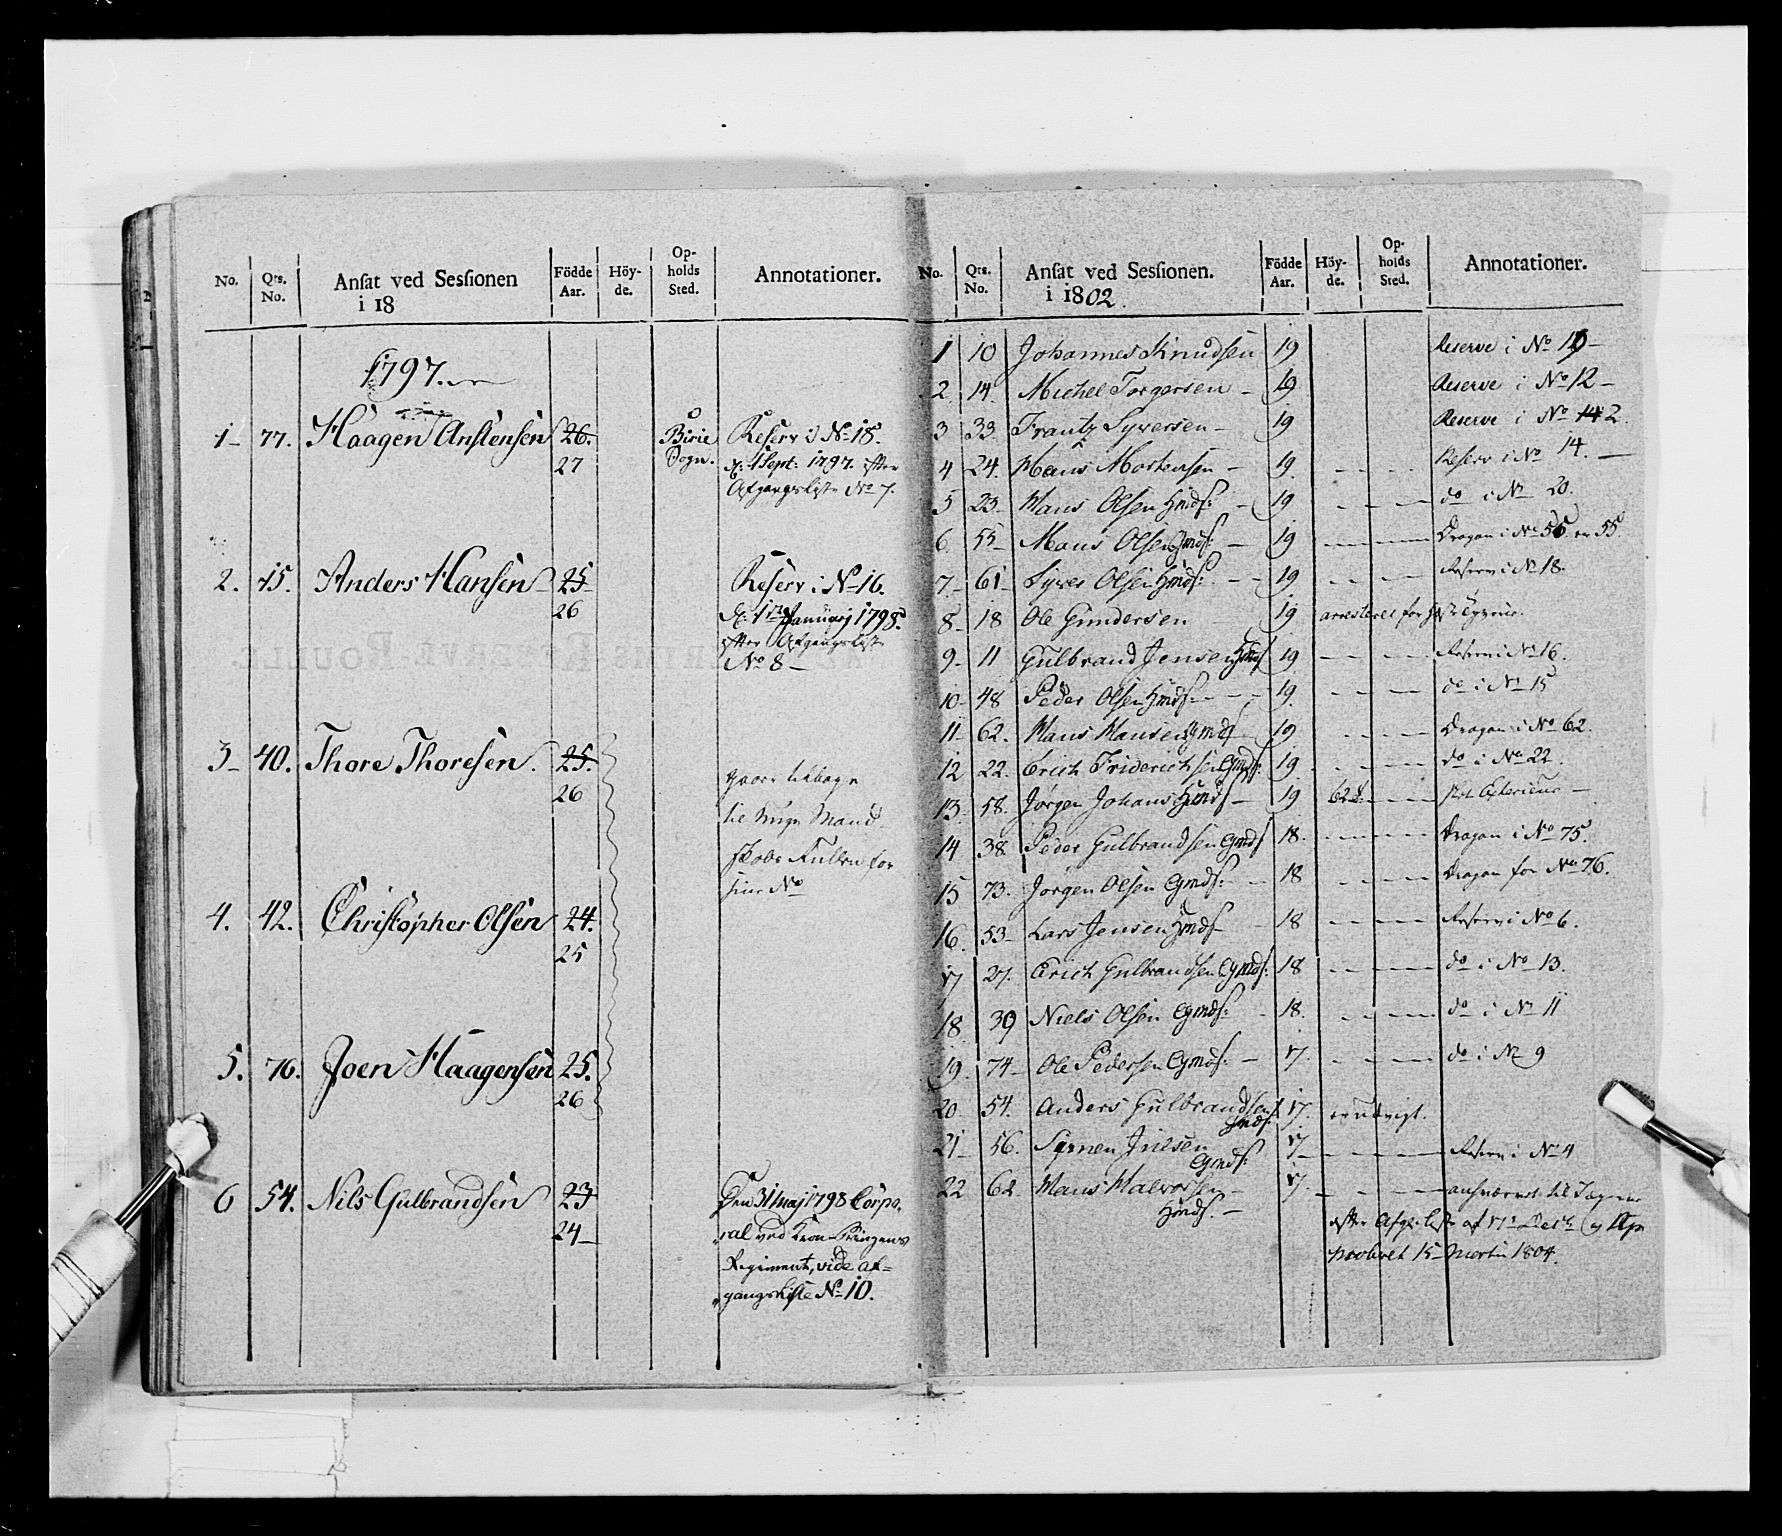 No. Qrs. No. Ansat ved Sessionen i 18 Födde Aar. Höy-de. Op-holds Sted. Annotationer.
1797.
1 77. Haagen Anstensen 26. 27 Birie Sogn. Reserv i No 18.
1 Sept: 1797. efter
Afgangsliste No 7.
2. 15. Anders Hansen 25 26 Reserv i No 16.
Januarj 1798.
efter Afgangsliste
No 8
3 40. Thore Thoresen. 25. 26
til unge Mand
Rullen for
No
4. 42. Christopher Olsen 24. 25
5. 76. Joen Haagensen 25. 26
6 54. Nils Gulbrandsen 23 24 Den 31 Maj 1798 Corpo-
ral ved Kron-Prinzens
Regiment, vide af=
gangsliste No 10.
No. Qrs. No. Ansat ved Sessionen. i 1802. Födde Aar. Höy-de. Op-holds Sted. Annotationer.
1 10 Johannes Knudsen 19 Reserve i No 10
2 14 Michel Torgersen 19 Reserve i No 12
3 33 Frantz Syversen 19 Reserve i No 14 2.
4 24. Hans Mortensen 19 Reserv i No 14.
5 23 Hans Olsen Hmds: 19 do i No 20.
6 55 Hans Olsen Gmds: 19 Dragon i No 55
7 61 Syver Olsen Hmds: 19 Reserv i No 18.
8 18 Ole Gundersen 19 arresteret for
9 11 Gulbrand Jensen Hmds 19 Reserv i No 16.
10 48 Peder Olsen Hmds: 19 do i No 15
11 62. Hans Hansen Gmds 19 Dragon i No 62.
12 22. Erich Friderichsen Gmds: 19 do i No 22.
13 58. Jørgen Johans Hmds 19
14 38. Peder Gulbrandsen Gmds 18. Dragon i No 75.
15 73. Jørgen Olsen Gmds: 18 Dragon for No 76.
16 53 Lars Jensen Hmds 18 Reserv i No 6.
17 27. Erich Gulbrandsen Gmds: 18 do i No 13.
18 39 Niels Olsen Gmds: 18. do i No 11
19 74 Ole Pedersen Gmds: 17 do i No 9
20 54. Anders Gulbrandsen Hmds: 17.
21 56. Simen Jnesen Gmds: 17 Reserv i No 4
22 62 Hans Halvorsen Hmds. 17
efter Afg: liste af
15 Martii 1804.